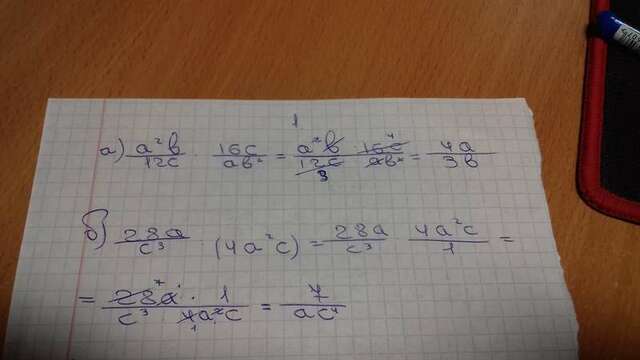 1
а) a²b/12c · 16c/ab² = a²b/12c · 16c/ab² = 4a/3b
3 4
б) 28a/c³ · (4a²c) = 28a/c³ · 4a²c/1 =
= 28a · 1/c³ · 4a²c = 7/ac⁴
7 1